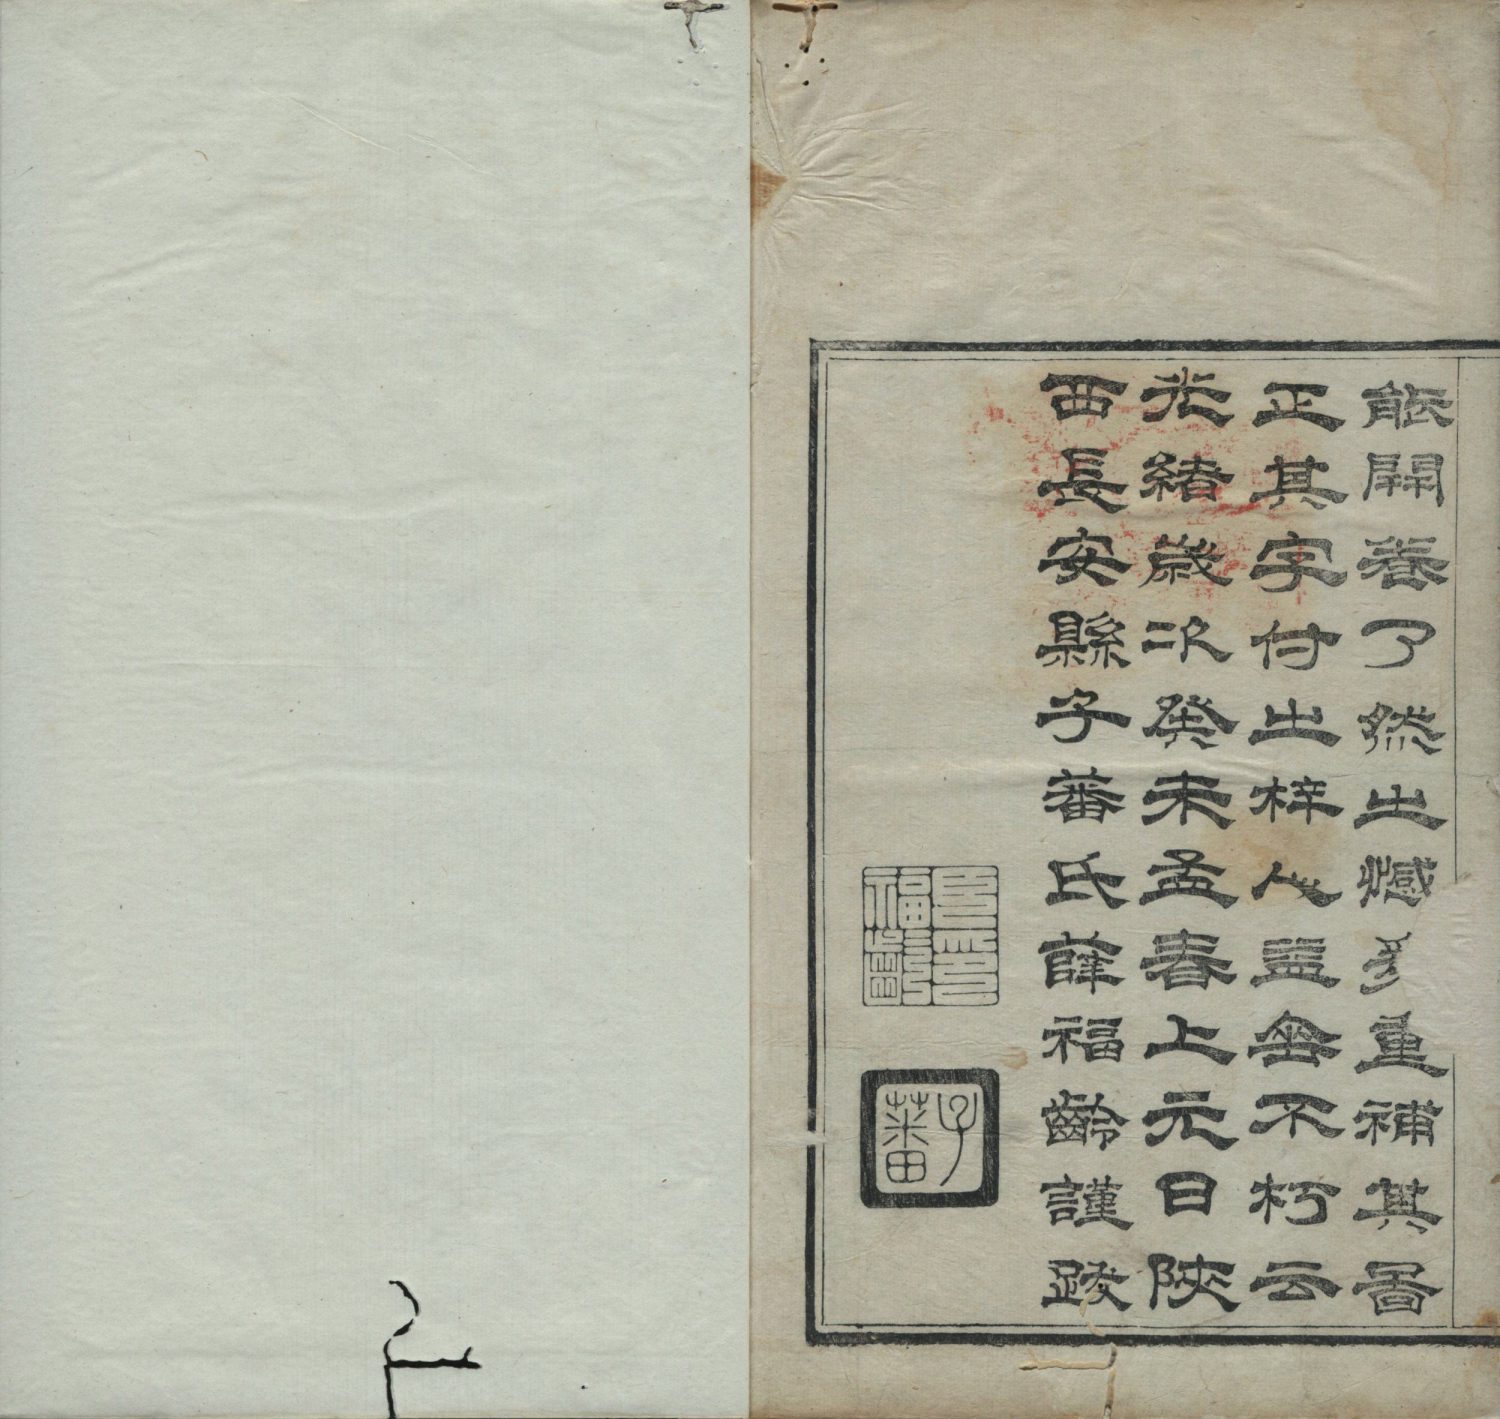 能開卷了然之憾重補其圖
正其字付之梓以益垂不朽云
光緒歲次癸未孟春上元日陝
西長安縣子蕃氏薛福齡謹跋
子蕃